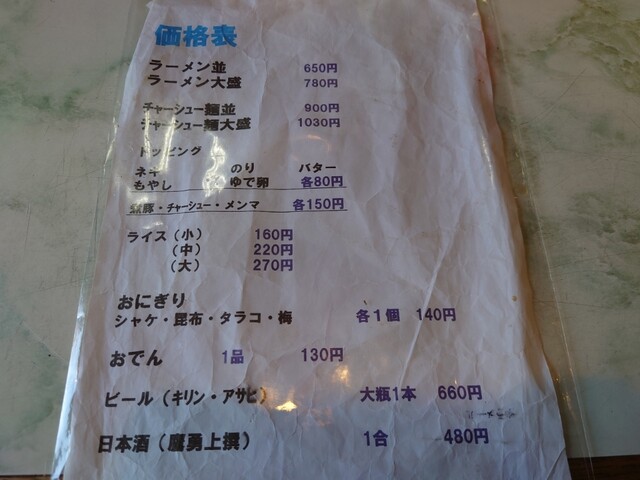 価格表
ラーメン並 650円
ラーメン大盛 780円
チャーシュー麺並 900円
チャーシュー麺大盛 1030円
トッピング
ネギ のり バター
もやし ゆで卵 各80円
・チャーシュー・メンマ 各150円
ライス(小) 160円
(中) 220円
(大) 270円
おにぎり
シャケ・昆布・タラコ・梅 各1個 140円
おでん 1品 130円
ビール(キリン・アサヒ) 大瓶1本 660円
日本酒(鷹勇上撰) 1合 480円